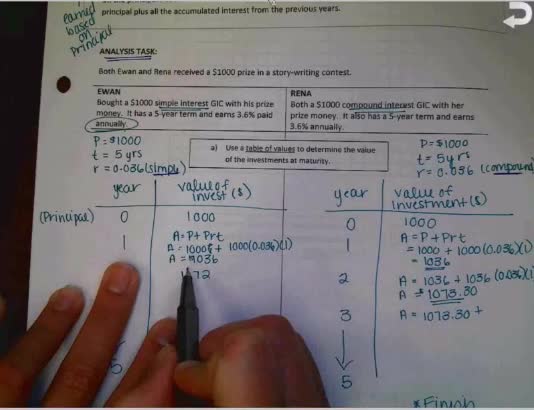 principal plus all the accumulated interest from the previous years.
earned
based
on
principal
ANALYSIS TASK:
Both Ewan and Rena received a $1000 prize in a story-writing contest.
EWAN
Bought a $1000 simple interest GIC with his prize
money. It has a 5-year term and earns 3.6% paid
annually.
RENA
Both a $1000 compound interest GIC with her
prize money. It also has a 5-year term and earns
3.6% annually.
P = $1000
t = 5 yrs
r = 0.036 (simple)
a) Use a table of values to determine the value
of the investments at maturity.
P = $1000
t = 5 yrs
r = 0.036 (compound
year
value of
invest ($)
(Principal) 0 1000
1 A = P + Prt
A = 1000 + 1000(0.036)(1)
A = 1036
1072
5
year
value of
investment ($)
0 1000
1 A = P + Prt
= 1000 + 1000(0.036)(1)
= 1036
2 A = 1036 + 1036(0.036)(1)
A = 1073.30
3 A = 1073.30 +
5
*Finish